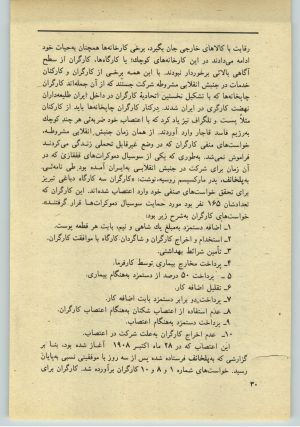 رقابت با کالاهای خارجی جان بگیرد، برخی کارخانه‌ها همچنان به‌حیات خود
ادامه می‌دادند در این کارخانه‌های کوچک؛ یا کارگاه‌ها، کارگران از سطح
آگاهی بالائی برخوردار نبودند. با این همه برخی از کارگران و کارکنان
خدمات در جنبش انقلابی مشروطه شرکت جستند که از آن جمله‌اند کارگران
چاپخانه‌ها که با تشکیل نخستین اتحادیهٔ کارگران در داخل ایران طلیعه‌داران
نهضت کارگری در ایران شدند. درکنار کارگران چاپخانه‌ها باید از کارکنان
مثلاً پست و تلگراف نیز یاد کرد که با اعتصاب خود ضربه‌ئی هر چند کوچک
به‌رژیم فاسد قاجار وارد آوردند. از همان زمان جنبش انقلابی مشروطه،
خواست‌های منفی کارگران که در وضع غیرقابل تحملی زندگی می‌کردند
فراموش نمی‌شد. به‌طوری که یکی از سوسیال دموکرات‌های قفقازی که در
آن زمان برای شرکت در جنبش انقلابی به‌ایران آمده بود طی نامه‌ئی
به‌پلخانف، پدر مارکسیسم روسیه، نوشت: «کارگران سه کارگاه دباغی تبریز
برای تحقق خواست‌های صنفی خود وارد اعتصاب شده‌اند. این کارگران که
تعدادشان ۱۶۵ نفر بود مورد حمایت سوسیال دموکرات‌ها قرار گرفتند.
خواست‌های کارگران به‌شرح زیر بود:
۱ـ اضافه دستمزد به‌مبلغ یک شاهی و نیم، بابت هر قطعه پوست.
۲ـ استخدام و اخراج کارگران و شاگردان کارگاه با موافقت کارگران.
۳ـ تأمین شرائط بهداشتی.
۴ـ پرداخت مخارج بیماری توسط کارفرما.
۵ ـ پرداخت ۵۰ درصد از دستمزد به‌هنگام بیماری.
۶ـ تقلیل اضافه کار.
۷ـ پرداخت دو برابر دستمزد بابت اضافه کار.
۸ـ عدم استفاده از اعتصاب شکنان به‌هنگام اعتصاب کارگران.
۹ـ پرداخت دستمزد به‌هنگام اعتصاب.
۱۰ـ عدم اخراج کارگران به‌علت شرکت در اعتصاب.
این اعتصاب که در ۲۸ ماه اکتبر ۱۹۰۸ آغاز شده بود، بنا بر
گزارشی که به‌پلخانف فرستاده شده پس از سه روز با موفقیتی نسبی به‌پایان
رسید. خواست‌های شماره ۱ و ۸ و ۱۰ کارگران برآورده شد. کارگران برای
۳۰